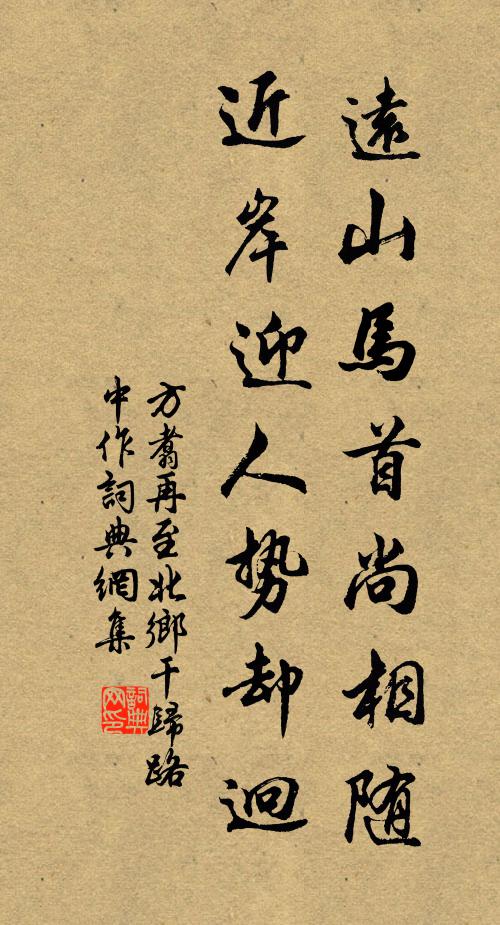 遠山馬首尚相随
近岸迎人势却迴
方翥再至北鄉干歸路
中作詞典網集
詞典网印